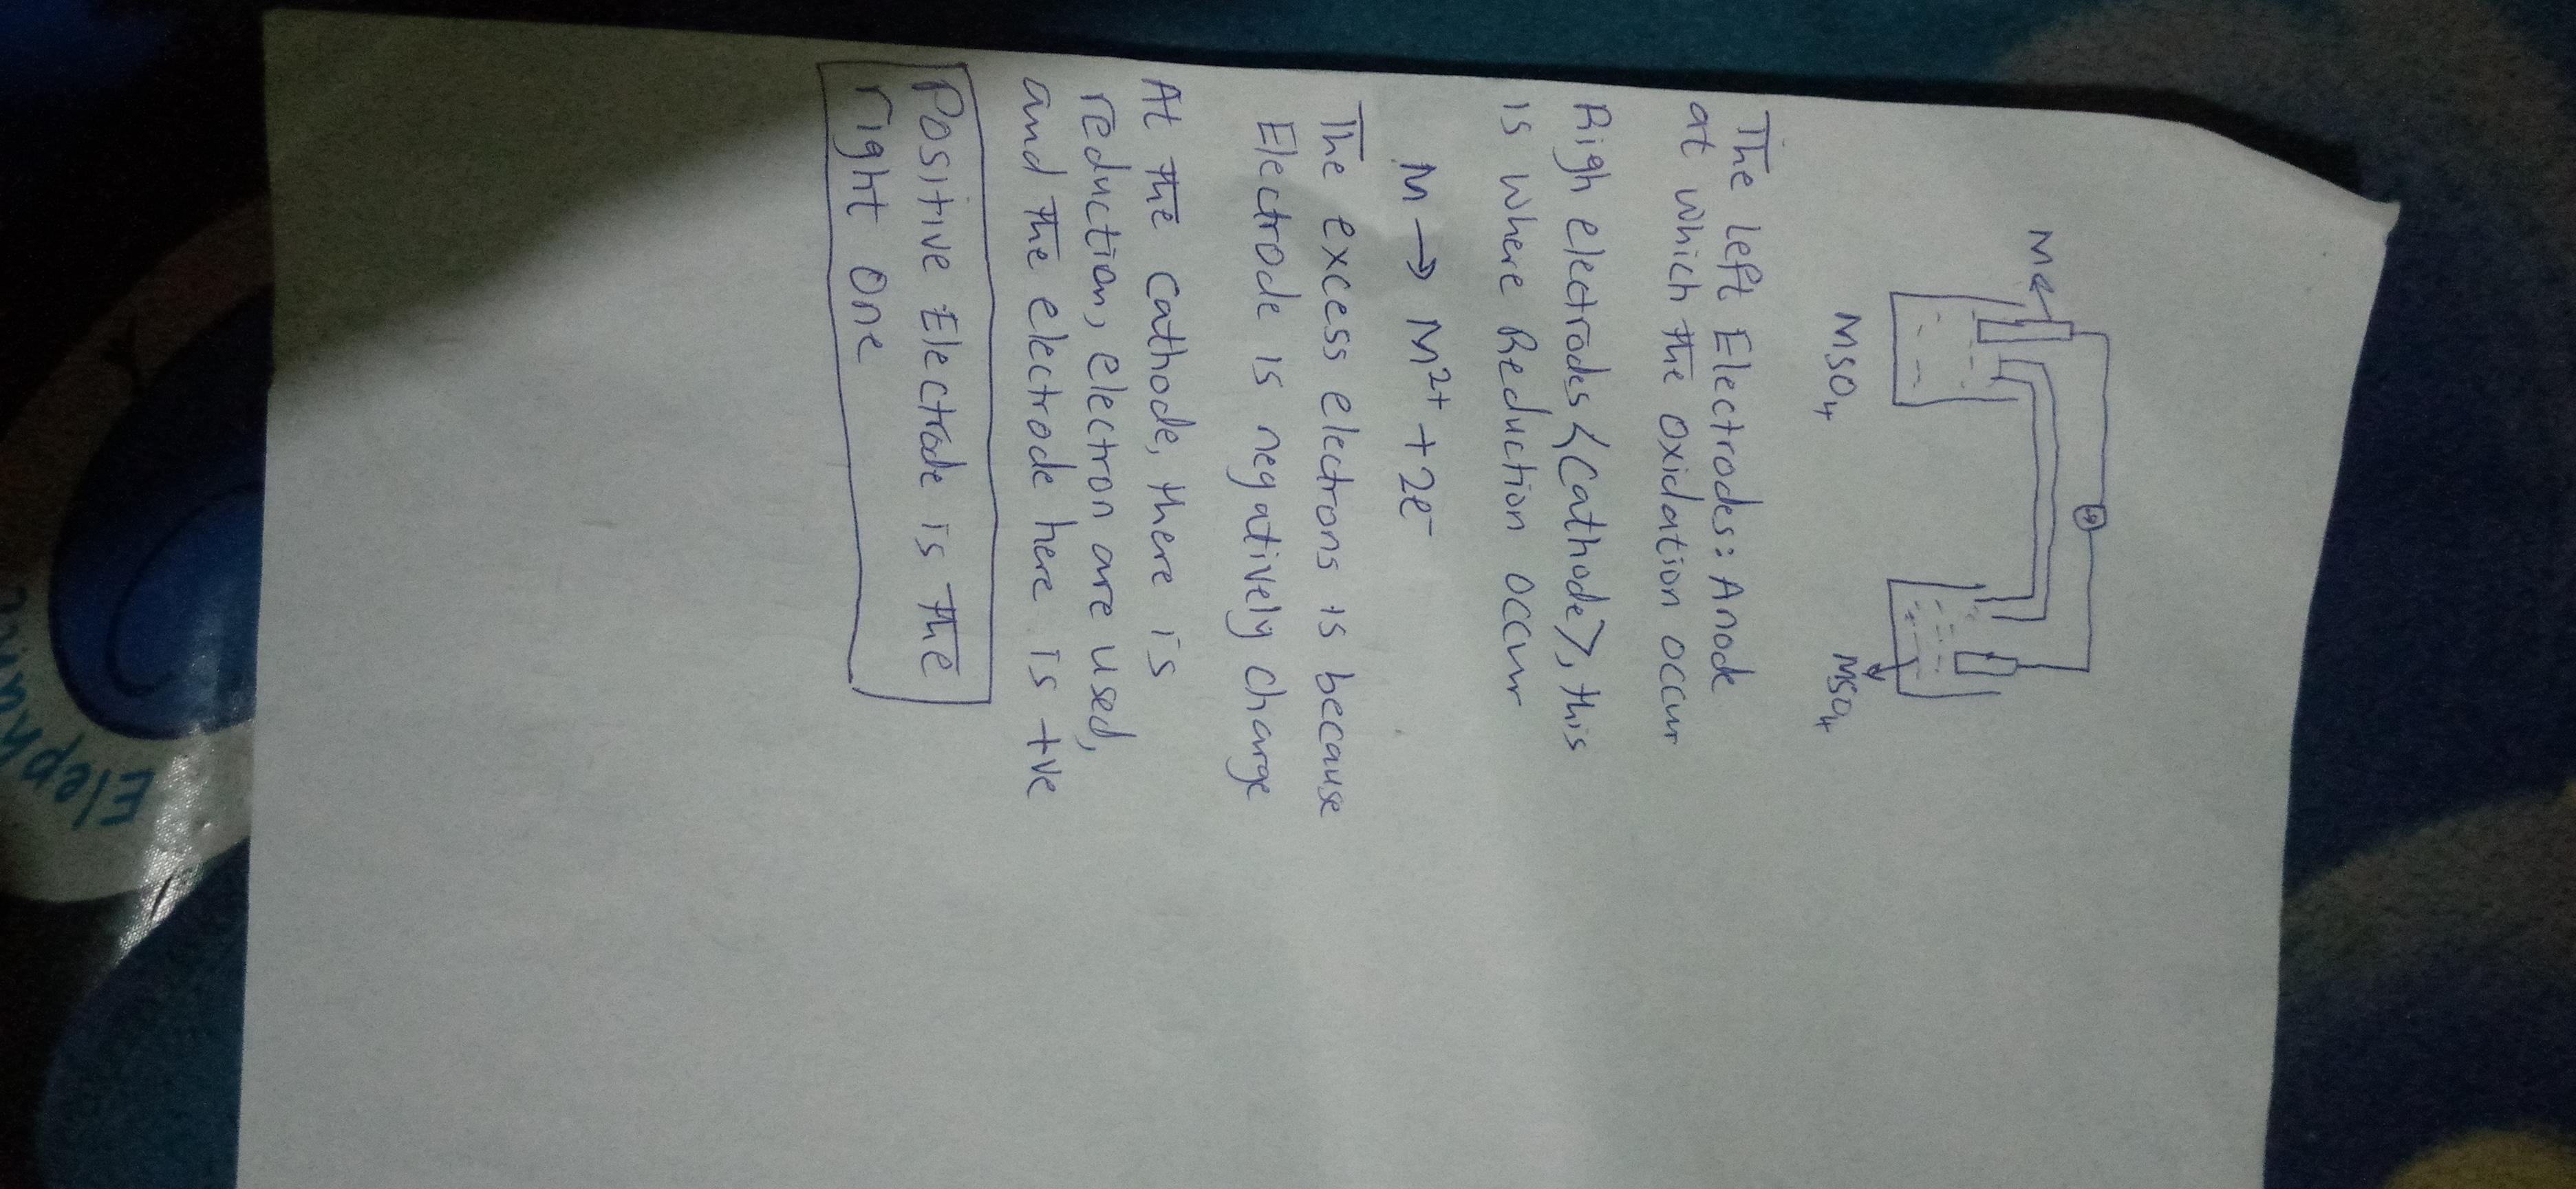 M
MSO4
MSO4
The left Electrodes: Anode
at which the oxidation occur
Righ electrodes <Cathode>, this
is where Reduction occur
M → M²⁺ + 2e⁻
The excess electrons is because
Electrode is negatively charge
At the cathode, there is
reduction, electron are used,
and the electrode here is +ve
Positive Electrode is the
right one
Eleph